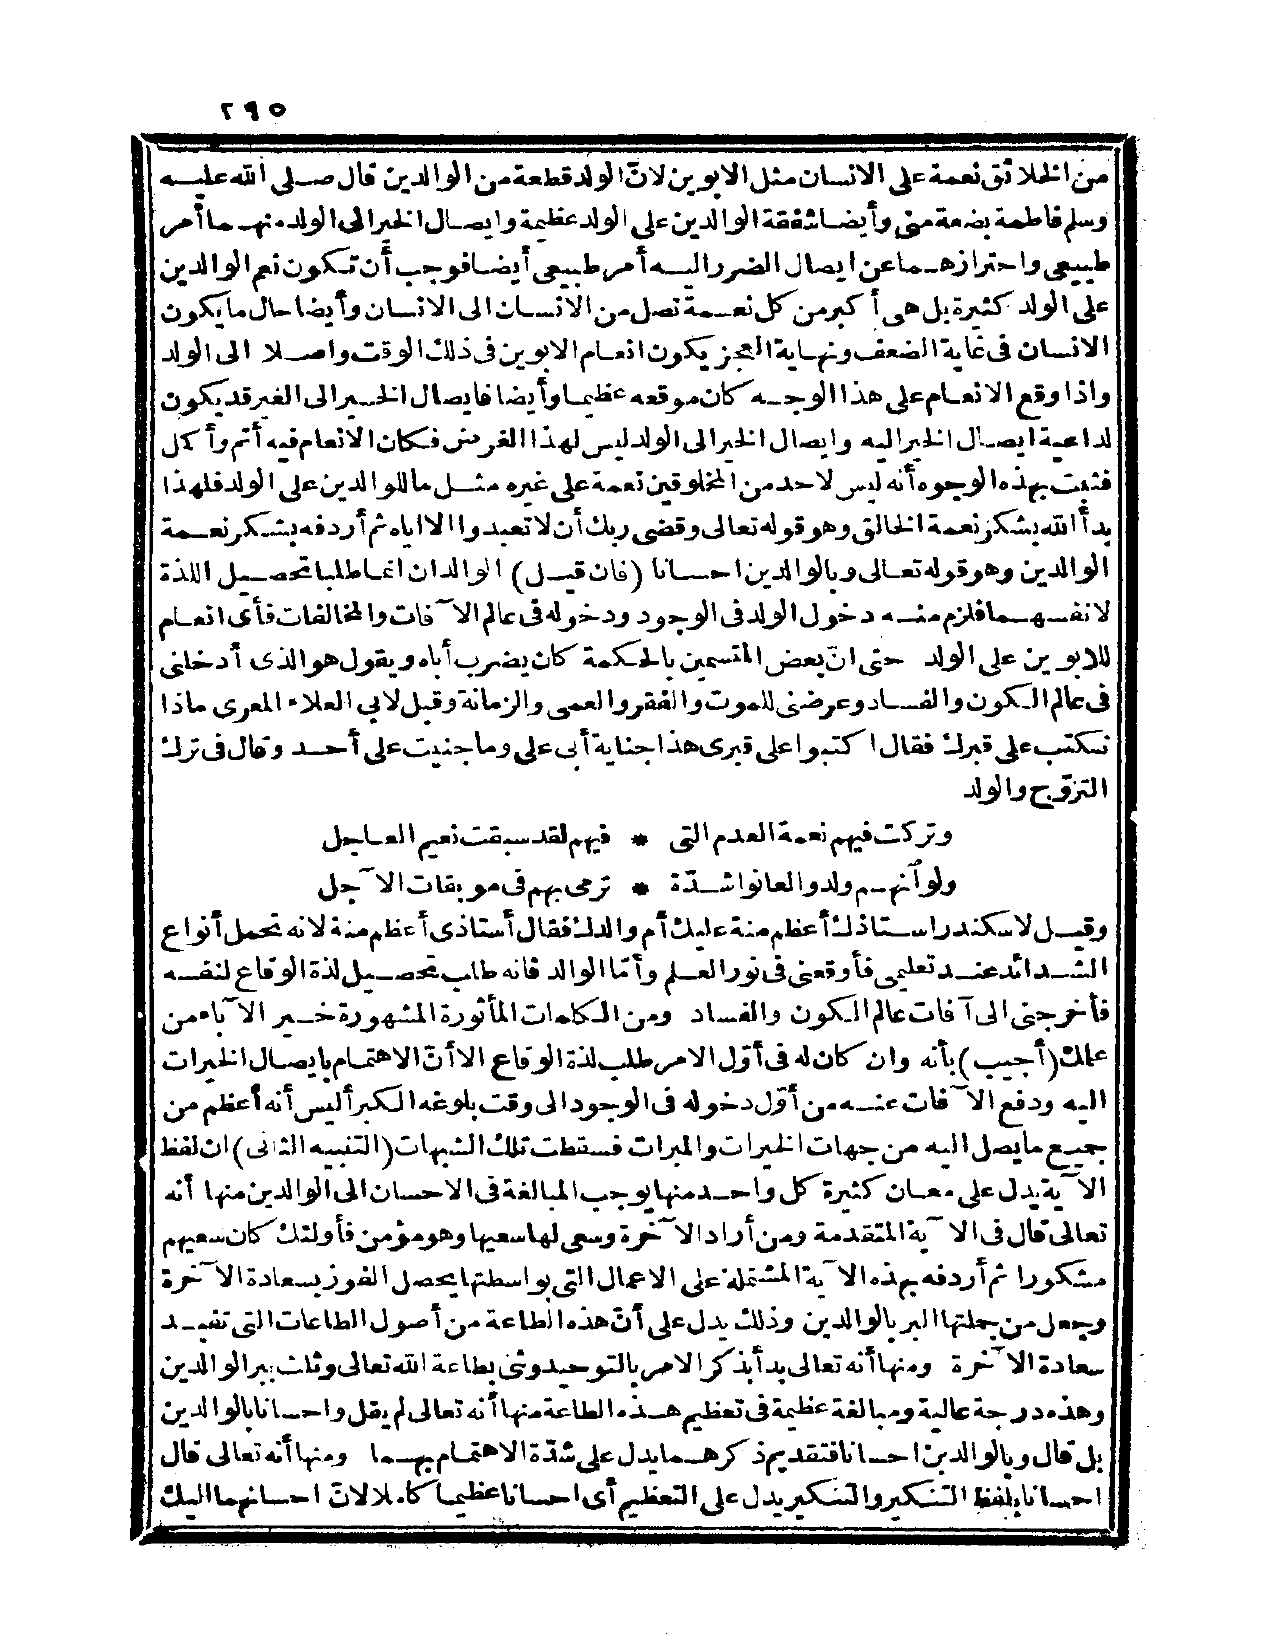 ٢٩٥
من الخلائق نعمة على الانسان مثل الابوين لانّ الولد قطعة من الوالدين قال صلى الله عليه
وسلم فاطمة بضعة منى وأيضا شفقة الوالدين على الولد عظيمة وايصال الخير الى الولد منهما أمر
طبيعى واحترازهما عن ايصال الضرر اليه أمر طبيعى أيضا فوجب أن تكون نعم الوالدين
على الولد كثيرة بل هى أكبر من كل نعمة تصل من الانسان الى الانسان وأيضا حال ما يكون
الانسان فى غاية الضعف ونهاية العجز يكون انعام الابوين فى ذلك الوقت واصلا الى الولد
واذا وقع الانعام على هذا الوجه كان موقعه عظيما وأيضا فايصال الخير الى الغير قد يكون
لداعية ايصال الخير اليه وايصال الخير الى الولد ليس لهذا الغرض فكان الانعام فيه أتم وأكمل
فثبت بهذه الوجوه أنه ليس لاحد من المخلوقين نعمة على غيره مثل ما للوالدين على الولد فلهذا
بدأ الله بشكر نعمة الخالق وهو قوله تعالى وقضى ربك أن لا تعبدوا الا اياه ثم أردفه بشكر نعمة
الوالدين وهو قوله تعالى وبالوالدين احسانا (فان قيل) الوالدان انما طلبا تحصيل اللذة
لانفسهما فلزم منه دخول الولد فى الوجود ودخوله فى عالم الآفات والمخالفات فأى انعام
للابوين على الولد حتى انّ بعض المتسمين بالحكمة كان يضرب أباه ويقول هو الذى أدخلنى
فى عالم الكون والفساد وعرضنى للموت والفقر والعمى والزمانة وقيل لابى العلاء المعرى ماذا
نكتب على قبرك فقال اكتبوا على قبرى هذا جناية أبى على وما جنيت على أحد وقال فى ترك
التزوّج والولد
وتركت فيهم نعمة العدم التى * فيهم لقد سبقت نعيم العاجل
ولو أنهم ولدوا لعانوا شدّة * ترمى بهم فى موبقات الآجل
وقيل لاسكندر استاذك أعظم منة عليك أم والدك فقال أستاذى أعظم منة لانه تحمل أنواع
الشدائد عند تعليمى فأوقعنى فى نور العلم وأمّا الوالد فانه طلب تحصيل لذة الوقاع لنفسه
فأخرجنى الى آفات عالم الكون والفساد ومن الكلمات المأثورة المشهورة خير الآباء من
علمك (أجيب) بأنه وان كان له فى أوّل الامر طلب لذة الوقاع الا أنّ الاهتمام بايصال الخيرات
اليه ودفع الآفات عنه من أوّل دخوله فى الوجود الى وقت بلوغه الكبر أليس أنه أعظم من
جميع ما يصل اليه من جهات الخيرات والمبرات فسقطت تلك الشبهات (التنبيه الثانى) ان لفظ
الآية يدل على معان كثيرة كل واحد منها يوجب المبالغة فى الاحسان الى الوالدين منها أنه
تعالى قال فى الآية المتقدمة ومن أراد الآخرة وسعى لها سعيها وهو مؤمن فأولئك كان سعيهم
مشكورا ثم أردفه بهذه الآية المشتملة على الاعمال التى بواسطتها يحصل الفوز بسعادة الآخرة
وجعل من جملتها البر بالوالدين وذلك يدل على أنّ هذه الطاعة من أصول الطاعات التى تفيد
سعادة الآخرة ومنها أنه تعالى بدأ بذكر الامر بالتوحيد وثنى بطاعة الله تعالى وثلث ببر الوالدين
وهذه درجة عالية ومبالغة عظيمة فى تعظيم هذه الطاعة منها أنه تعالى لم يقل واحسانا بالوالدين
بل قال وبالوالدين احسانا فتقديم ذكرهما يدل على شدّة الاهتمام بهما ومنها أنه تعالى قال
احسانا بلفظ التنكير والتنكير يدل على التعظيم أى احسانا عظيما كاملا لانّ احسانهما اليك